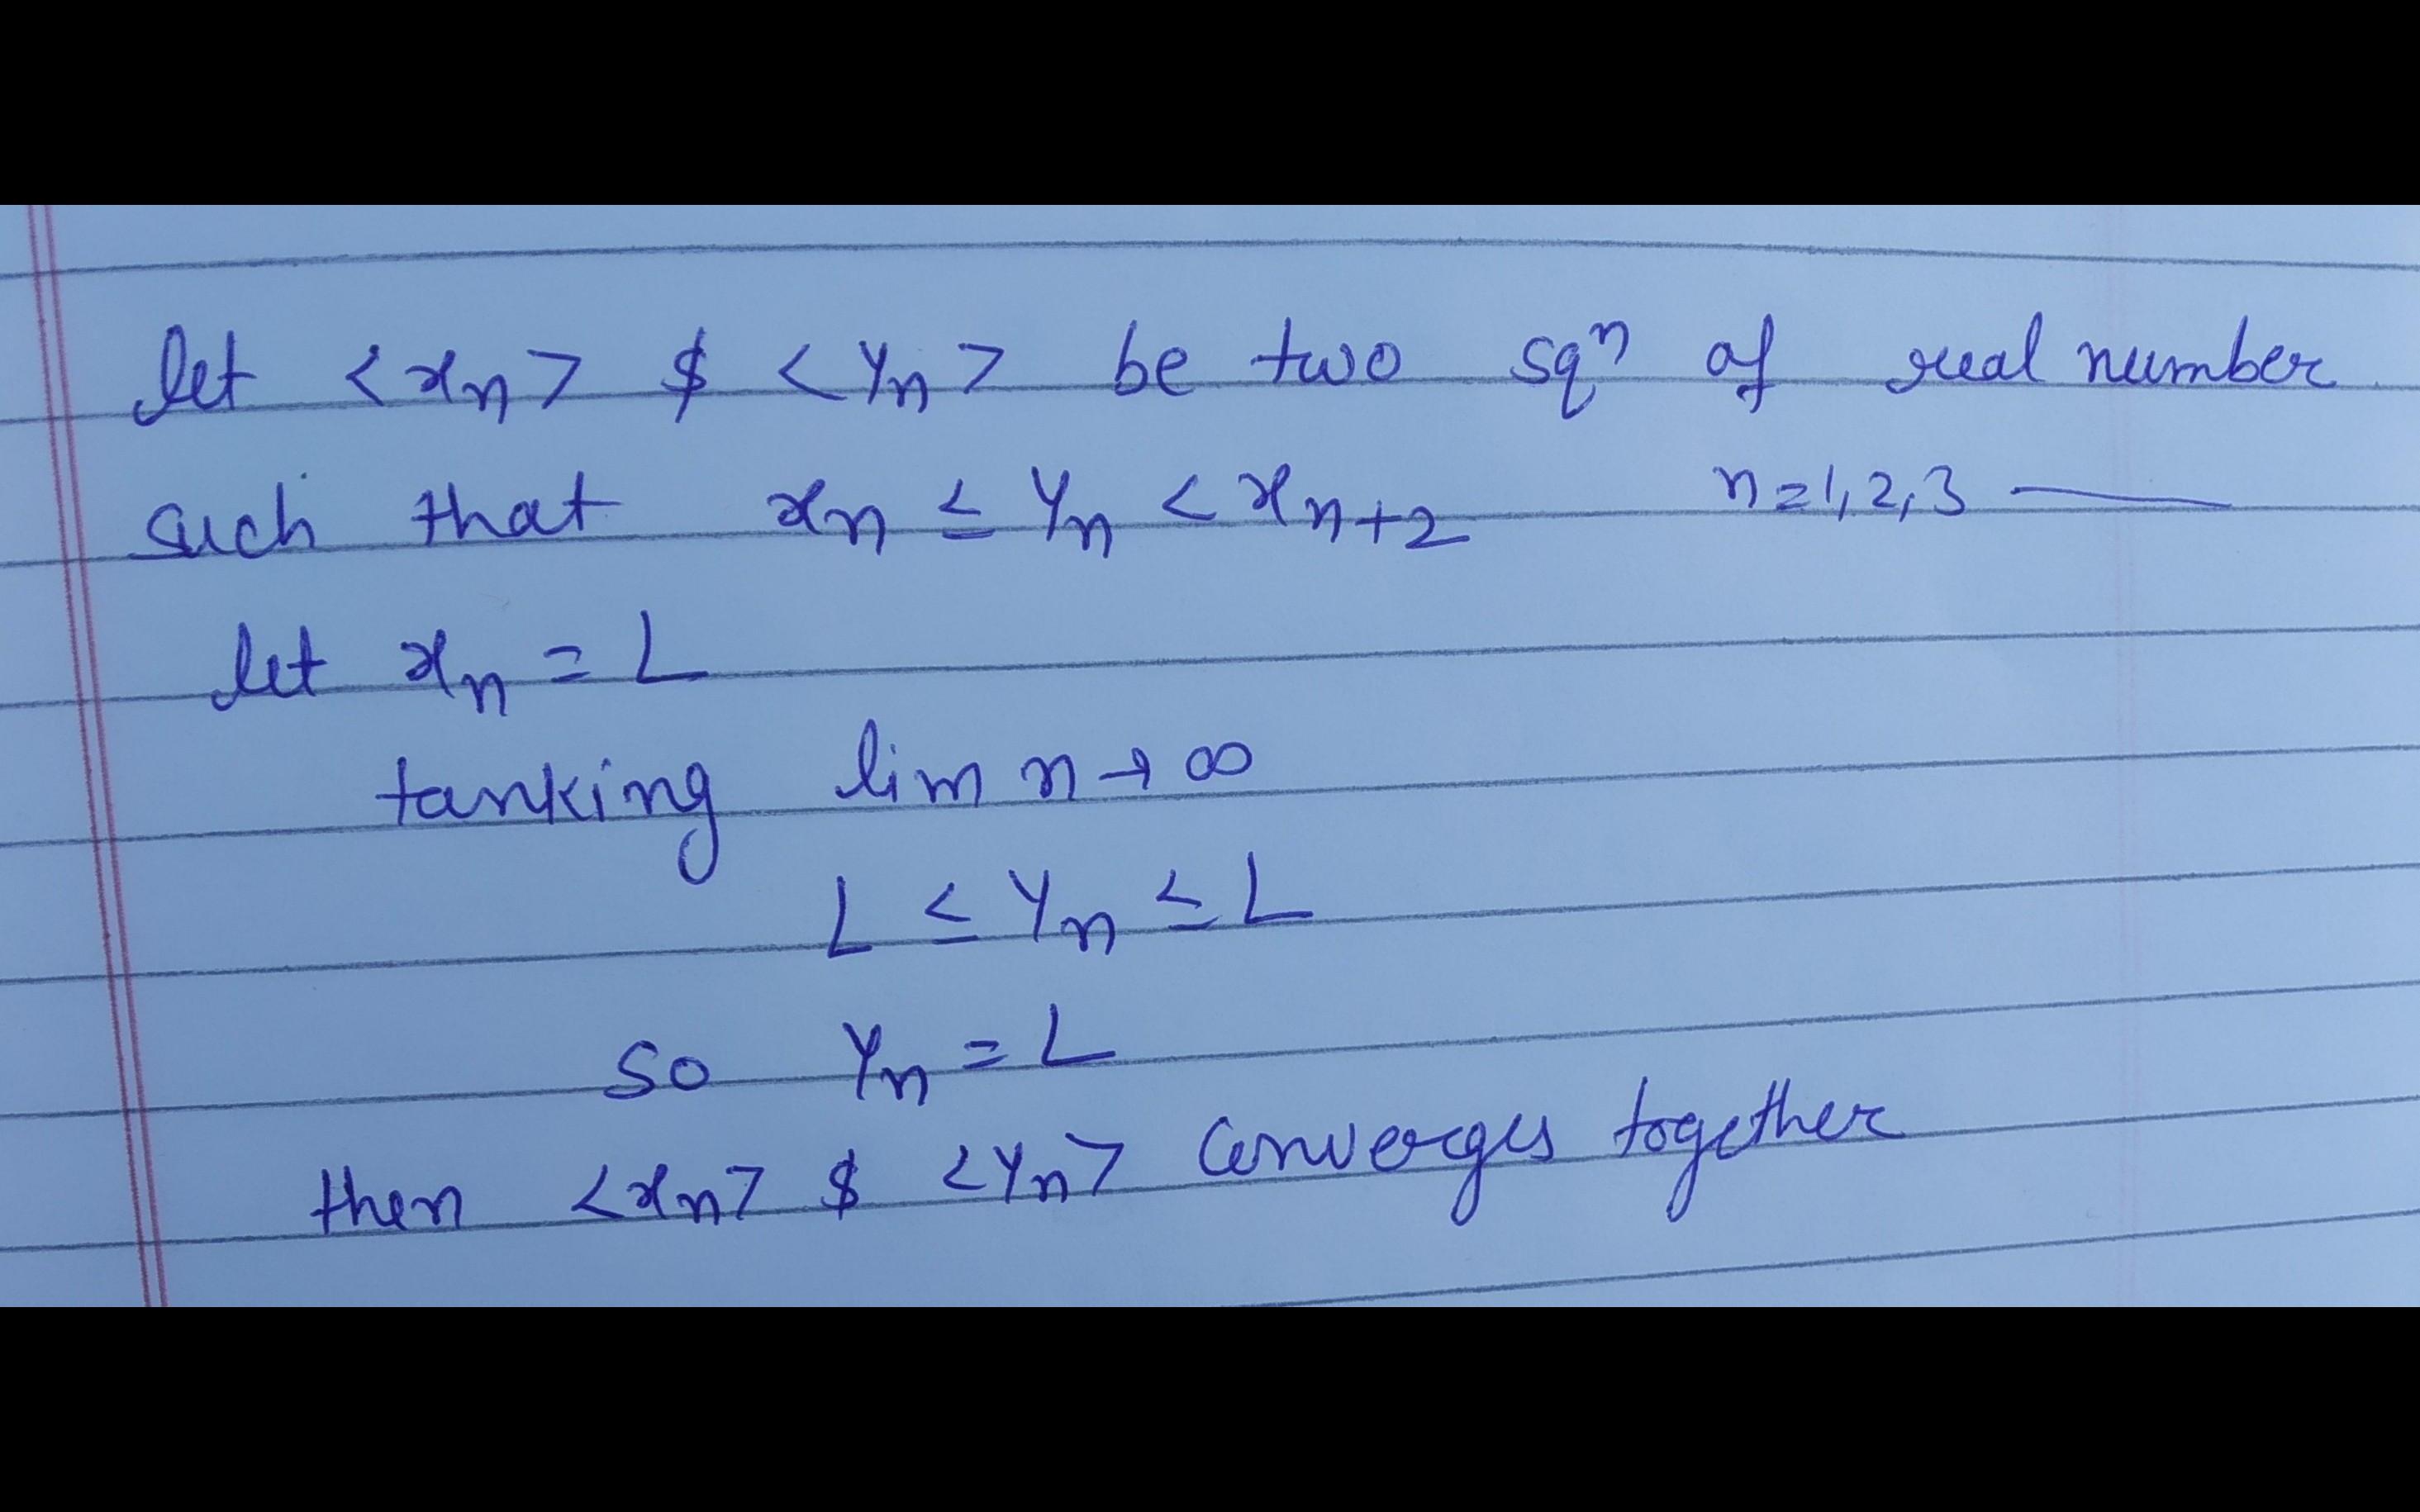 let <xn> $ <Yn> be two sqⁿ of real number
such that xn ≤ Yn < xn+2 n=1,2,3 ——
let xn = L
tanking lim n→∞
L ≤ Yn ≤ L
so Yn = L
then <xn> $ <Yn> Converges together